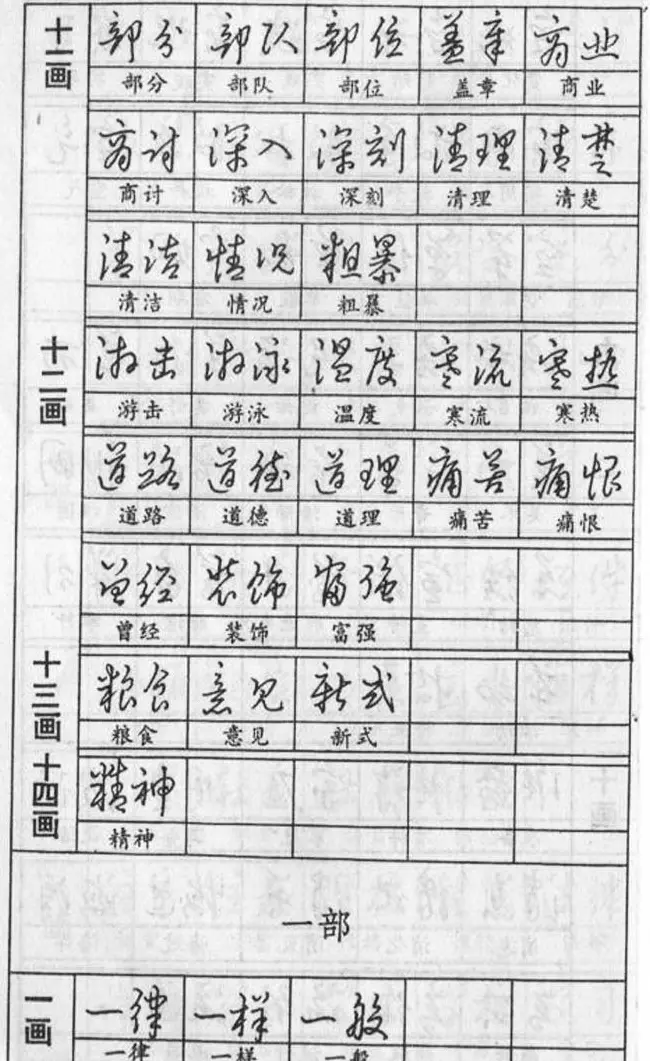 十一画
部分 部队 部位 盖章 商业
部分 部队 部位 盖章 商业
商讨 深入 深刻 清理 清楚
商讨 深入 深刻 清理 清楚
清洁 情况 粗暴
清洁 情况 粗暴
十二画
游击 游泳 温度 寒流 寒热
游击 游泳 温度 寒流 寒热
道路 道德 道理 痛苦 痛恨
道路 道德 道理 痛苦 痛恨
曾经 装饰 富强
曾经 装饰 富强
十三画
粮食 意见 新式
粮食 意见 新式
十四画
精神
精神
一部
一画
一律 一样 一般
一律 一样 一般